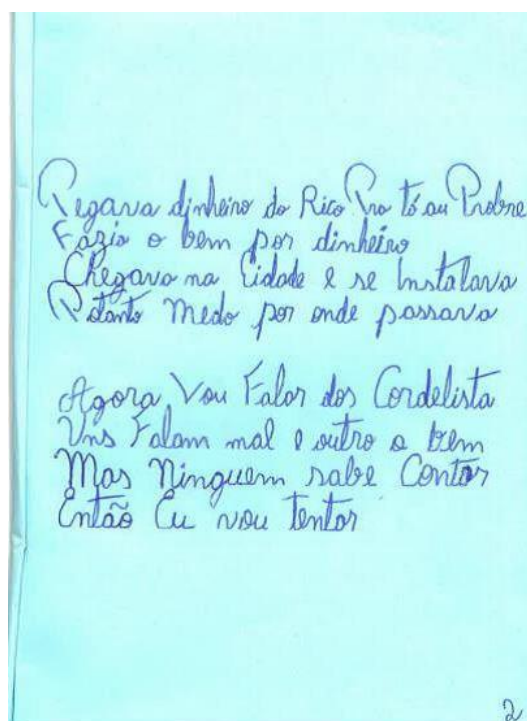 Pegava dinheiro do Rico Pra tó au Probre
Fazia o bem por dinheiro
Chegava na Cidade e se Instalava
Potanto Medo por onde passava
Agora Vou Falar dos Cordelista
Uns Falam mal e outro o bem
Mas Ninguem sabe Contar
Então Eu vou tentar
2